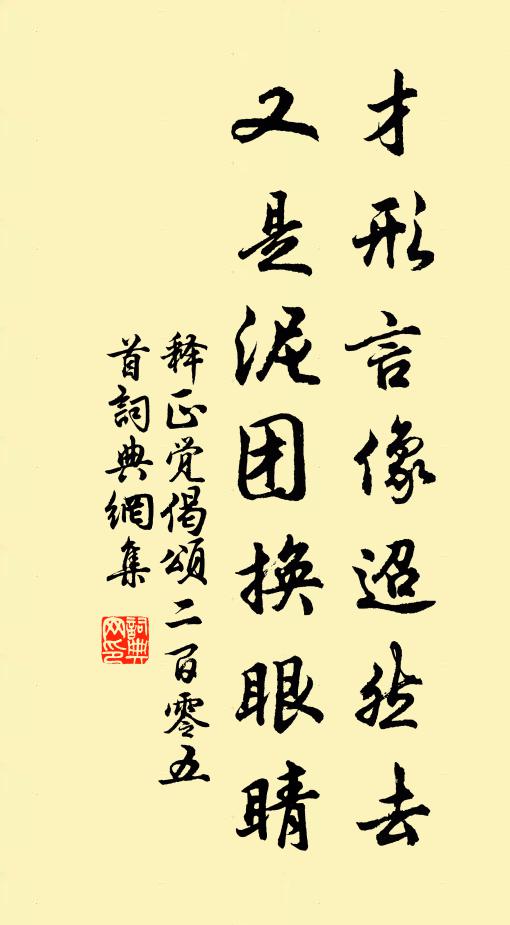 才形言像迢然去
又是泥团换眼睛
释正觉偈颂二百零五
首詞典網集
詞典网印